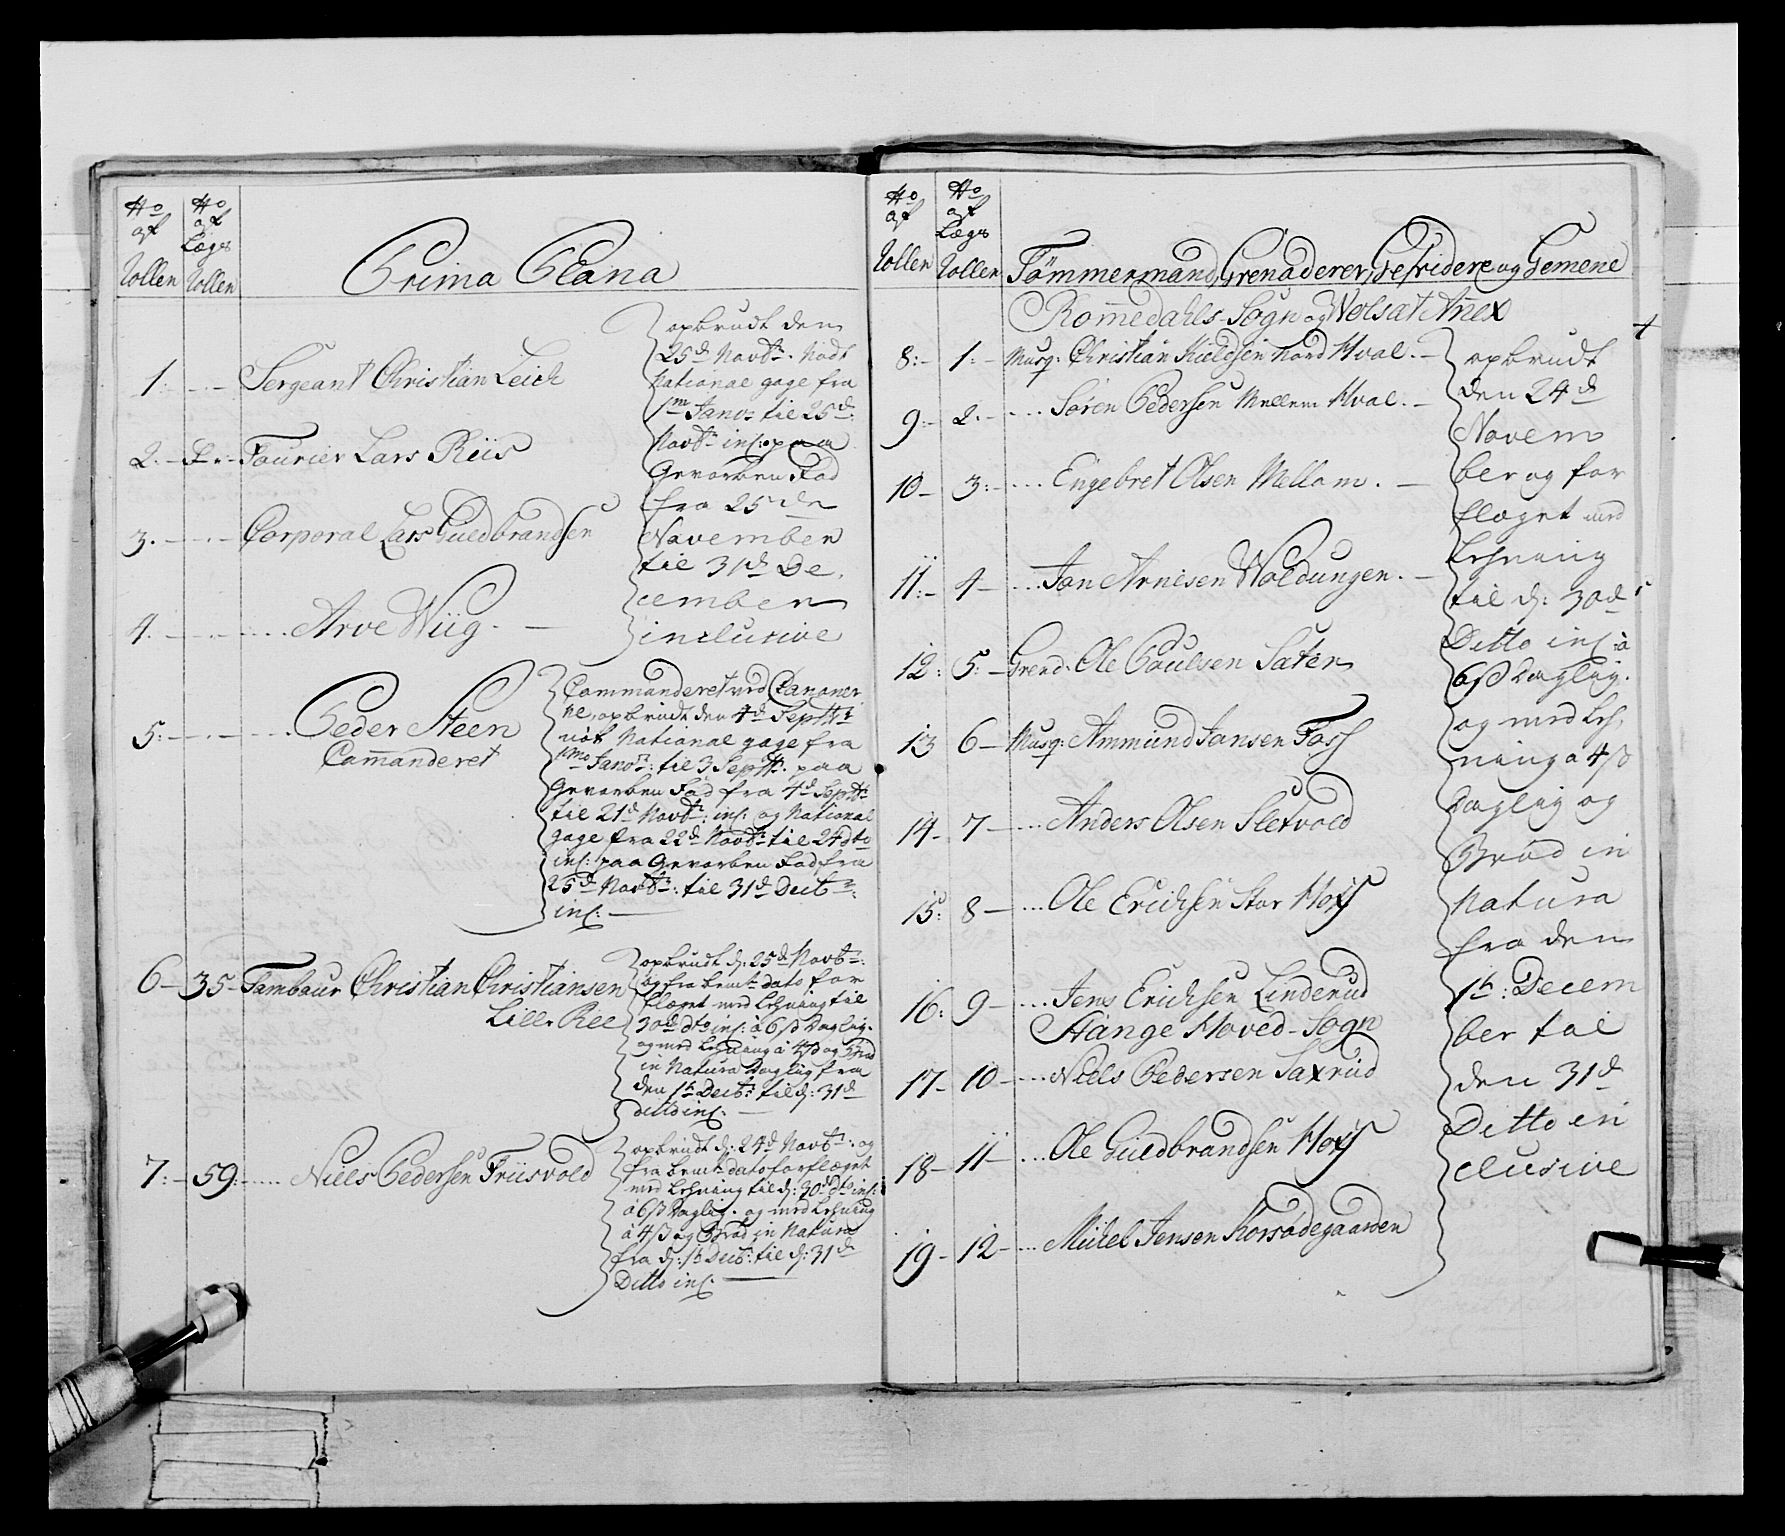 No af Rollen
No af Lægs Rollen
Prima Plana
1. Sergeant Christian Leich
2. Fourier Lars Riis
3. Corporal Lars Guldbrandsen
4. Arve Wiig
opbrudt den
25de Novbr. Nödt
National gage fra
1me Janv: til 25de
Novbr incl: paa
Gevorben Fod
fra 25de
November
til 31de De
cember
inclusive
5. Peder Steen
Commanderet
Commanderet ved
opbrudt den 4de Septbr:
nöt National gage fra
1mo Janv: til 3 Septbr. paa
Gevorben Fod fra 4de Septbr
til 21de Novbr: incl: og National
gage fra 22de Novbr: til 24de dto
incl: paa Gevorben Fod fra
25de Novbr: til 31de Decbr:
incl:
6 - 35 - Tambour Christian Christiansen
Lille Ree
opbrudt d: 25de Novbr:
og fra bemte dato for
flæget med Lehning til
30de dto incl: à 6 ß Daglig.
og med Lehning à 4 ß og Bröd
in Natura Daglig fra
den 1te Decbr: til d: 31de
ditto incl.
7: - 59: Niels Pedersen Friisvold
opbrudt d: 24de Novbr: og
fra bemte dato forflæget
med Lehning til d: 30de dto incl:
à 6 ß Daglig. og med Lehning
à 4 ß og Bröd in Natura
fra d: 1te Decbr: til d: 31de
Ditto incl.
No af Rollen
No af Lægs Rollen
Tömmermand, Grenaderer, Gefridere og Gemene
Rommedahls Sogn og Wolsat Annex
8: - 1: - Musq: Christian Kieldsen Nord Hval.
9: - 2. - Sören Pedersen Mellem Hval.
10 - 3: - Engebret Olsen Mellom.
11: - 4 - Jon Arnesen Woldungen.
12: 5: - Grend. Ole Poulsen Saten
13 6 - Musq: Ammund Jansen Foss
14 - 7 - Anders Olsen Sletvold
15: 8 - Ole Erichsen Stor Hoff
16: 9 - Jens Erichsen Linderud
Stange Hoved-Sogn
17 - 10 - Niels Pedersen Saxrud
18 - 11 - Ole Guldbrandsen Hoff
19 - 12 - Mickel Jensen Korsödegaarden
opbrudt
den 24de
Novem
ber og for
flæget med
Lehning
til d: 30de
Ditto incl: à
6 ß Daglig.
og med Leh
ning à 4 ß
Daglig og
Bröd in
Natura
fra den
1te: Decem
ber til
den 31de
Ditto in
clusive